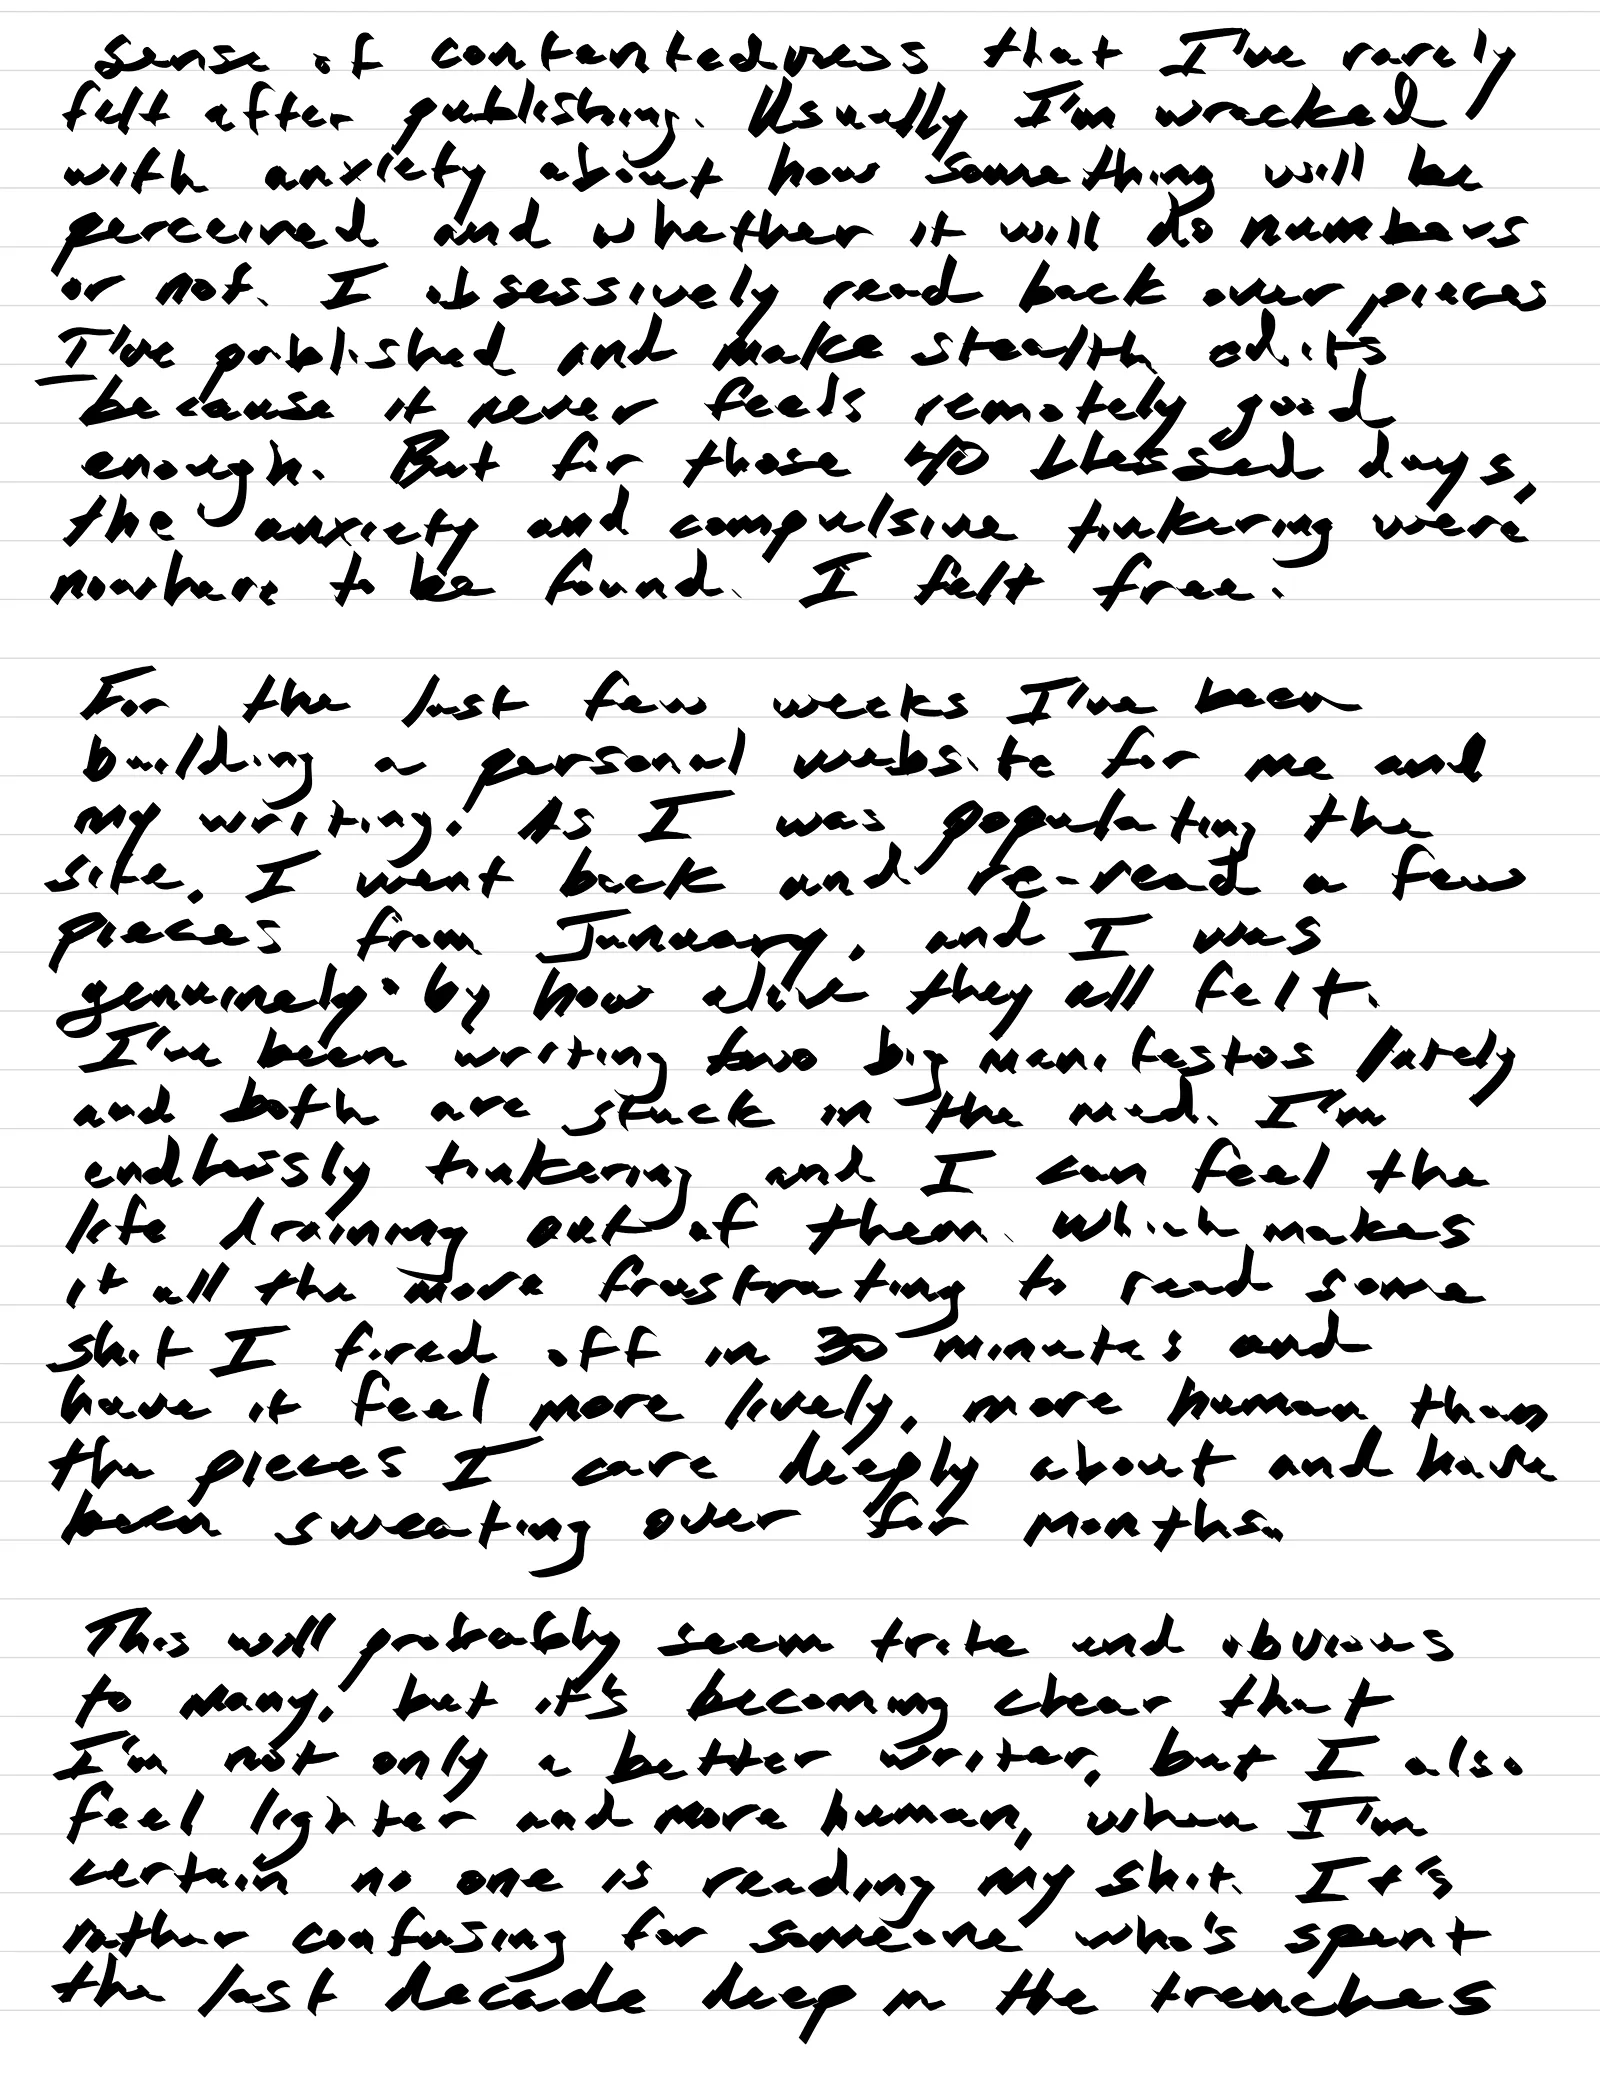 sense of contentedness that I've rarely
felt after publishing. Usually I'm wracked
with anxiety about how something will be
perceived and whether it will do numbers
or not. I obsessively read back over pieces
I've published and make stealth edits
because it never feels remotely good
enough. But for those 40 blessed days,
the anxiety and compulsive tinkering were
nowhere to be found. I felt free.
For the last few weeks I've been
building a personal website for me and
my writing. As I was populating the
site, I went back and re-read a few
pieces from January, and I was
genuinely by how alive they all felt.
I've been writing two big manifestos lately
and both are stuck in the mud. I'm
endlessly tinkering and I can feel the
life draining out of them. Which makes
it all the more frustrating to read some
shit I fired off in 30 minutes and
have it feel more lively, more human than
the pieces I care deeply about and have
been sweating over for months.
This will probably seem trite and obvious
to many, but it's becoming clear that
I'm not only a better writer, but I also
feel lighter and more human, when I'm
certain no one is reading my shit. It's
rather confusing for someone who's spent
the last decade deep in the trenches